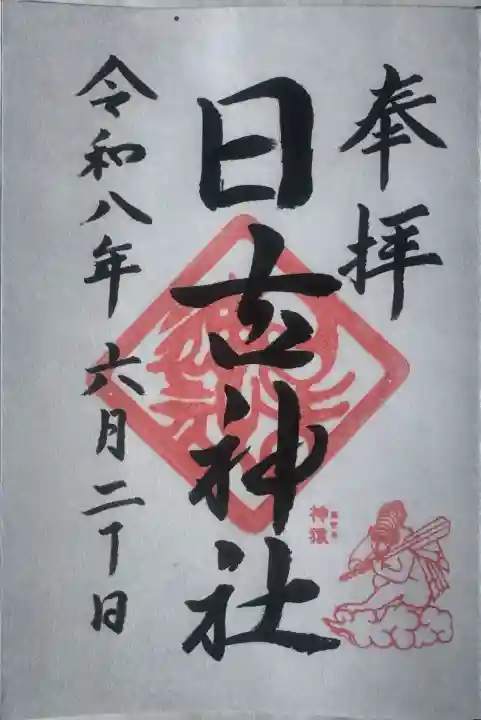 奉拝
日吉神社
令和八年六月二十日
神猿